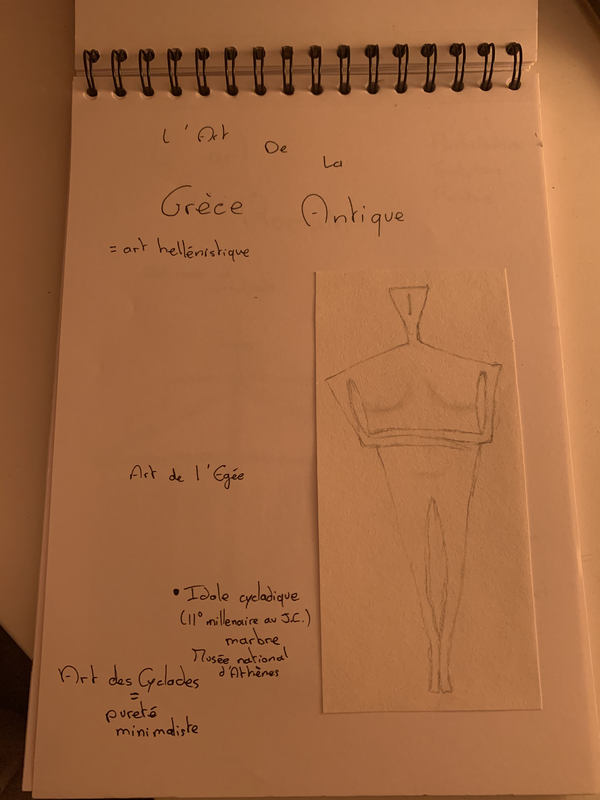 L'Art
De
La
Grèce Antique
= art hellénistique
Art de l'Egée
• Idole cycladique
(II° millenaire au J.C.)
marbre
Musée national
d'Athènes
Art des Cyclades
=
pureté
minimaliste